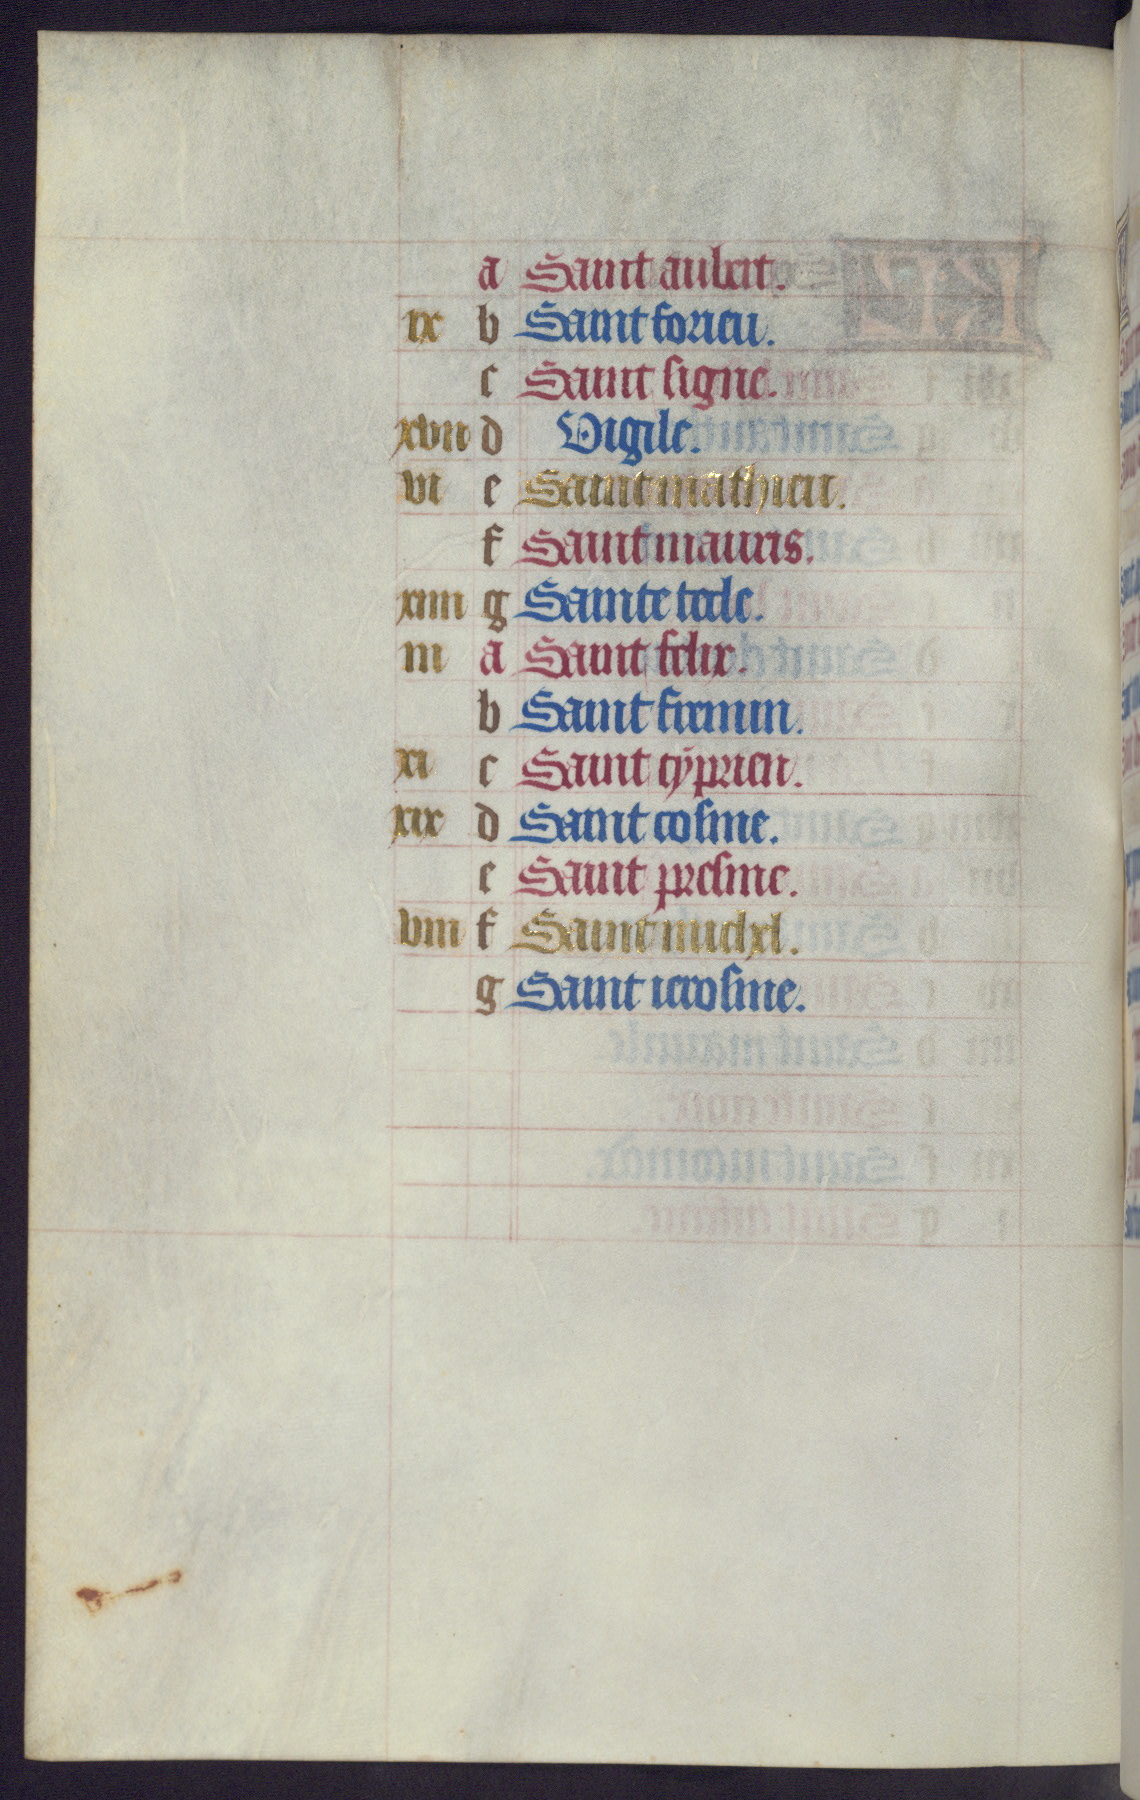 a Saint aubert.
ix b Saint forieu.
c Saint signe.
xvii d Vigile.
vi e Saint mathieu.
f Saint mauris.
xiiii g Sainte tecle.
iii a Saint felix.
b Saint firmin.
xi c Saint cyprien.
xix d Saint cosme.
e Saint presme.
viii f Saint michel.
g Saint ierosme.